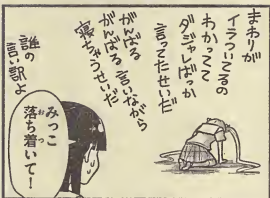 まわりが
イラついてるの
わかってて
ダジャレばっか
言ってたせいだ
がんばる
がんばる 言いながら
寝ちゃうせいだ
誰の
言い訳よ
みっこ
落ち着いて!